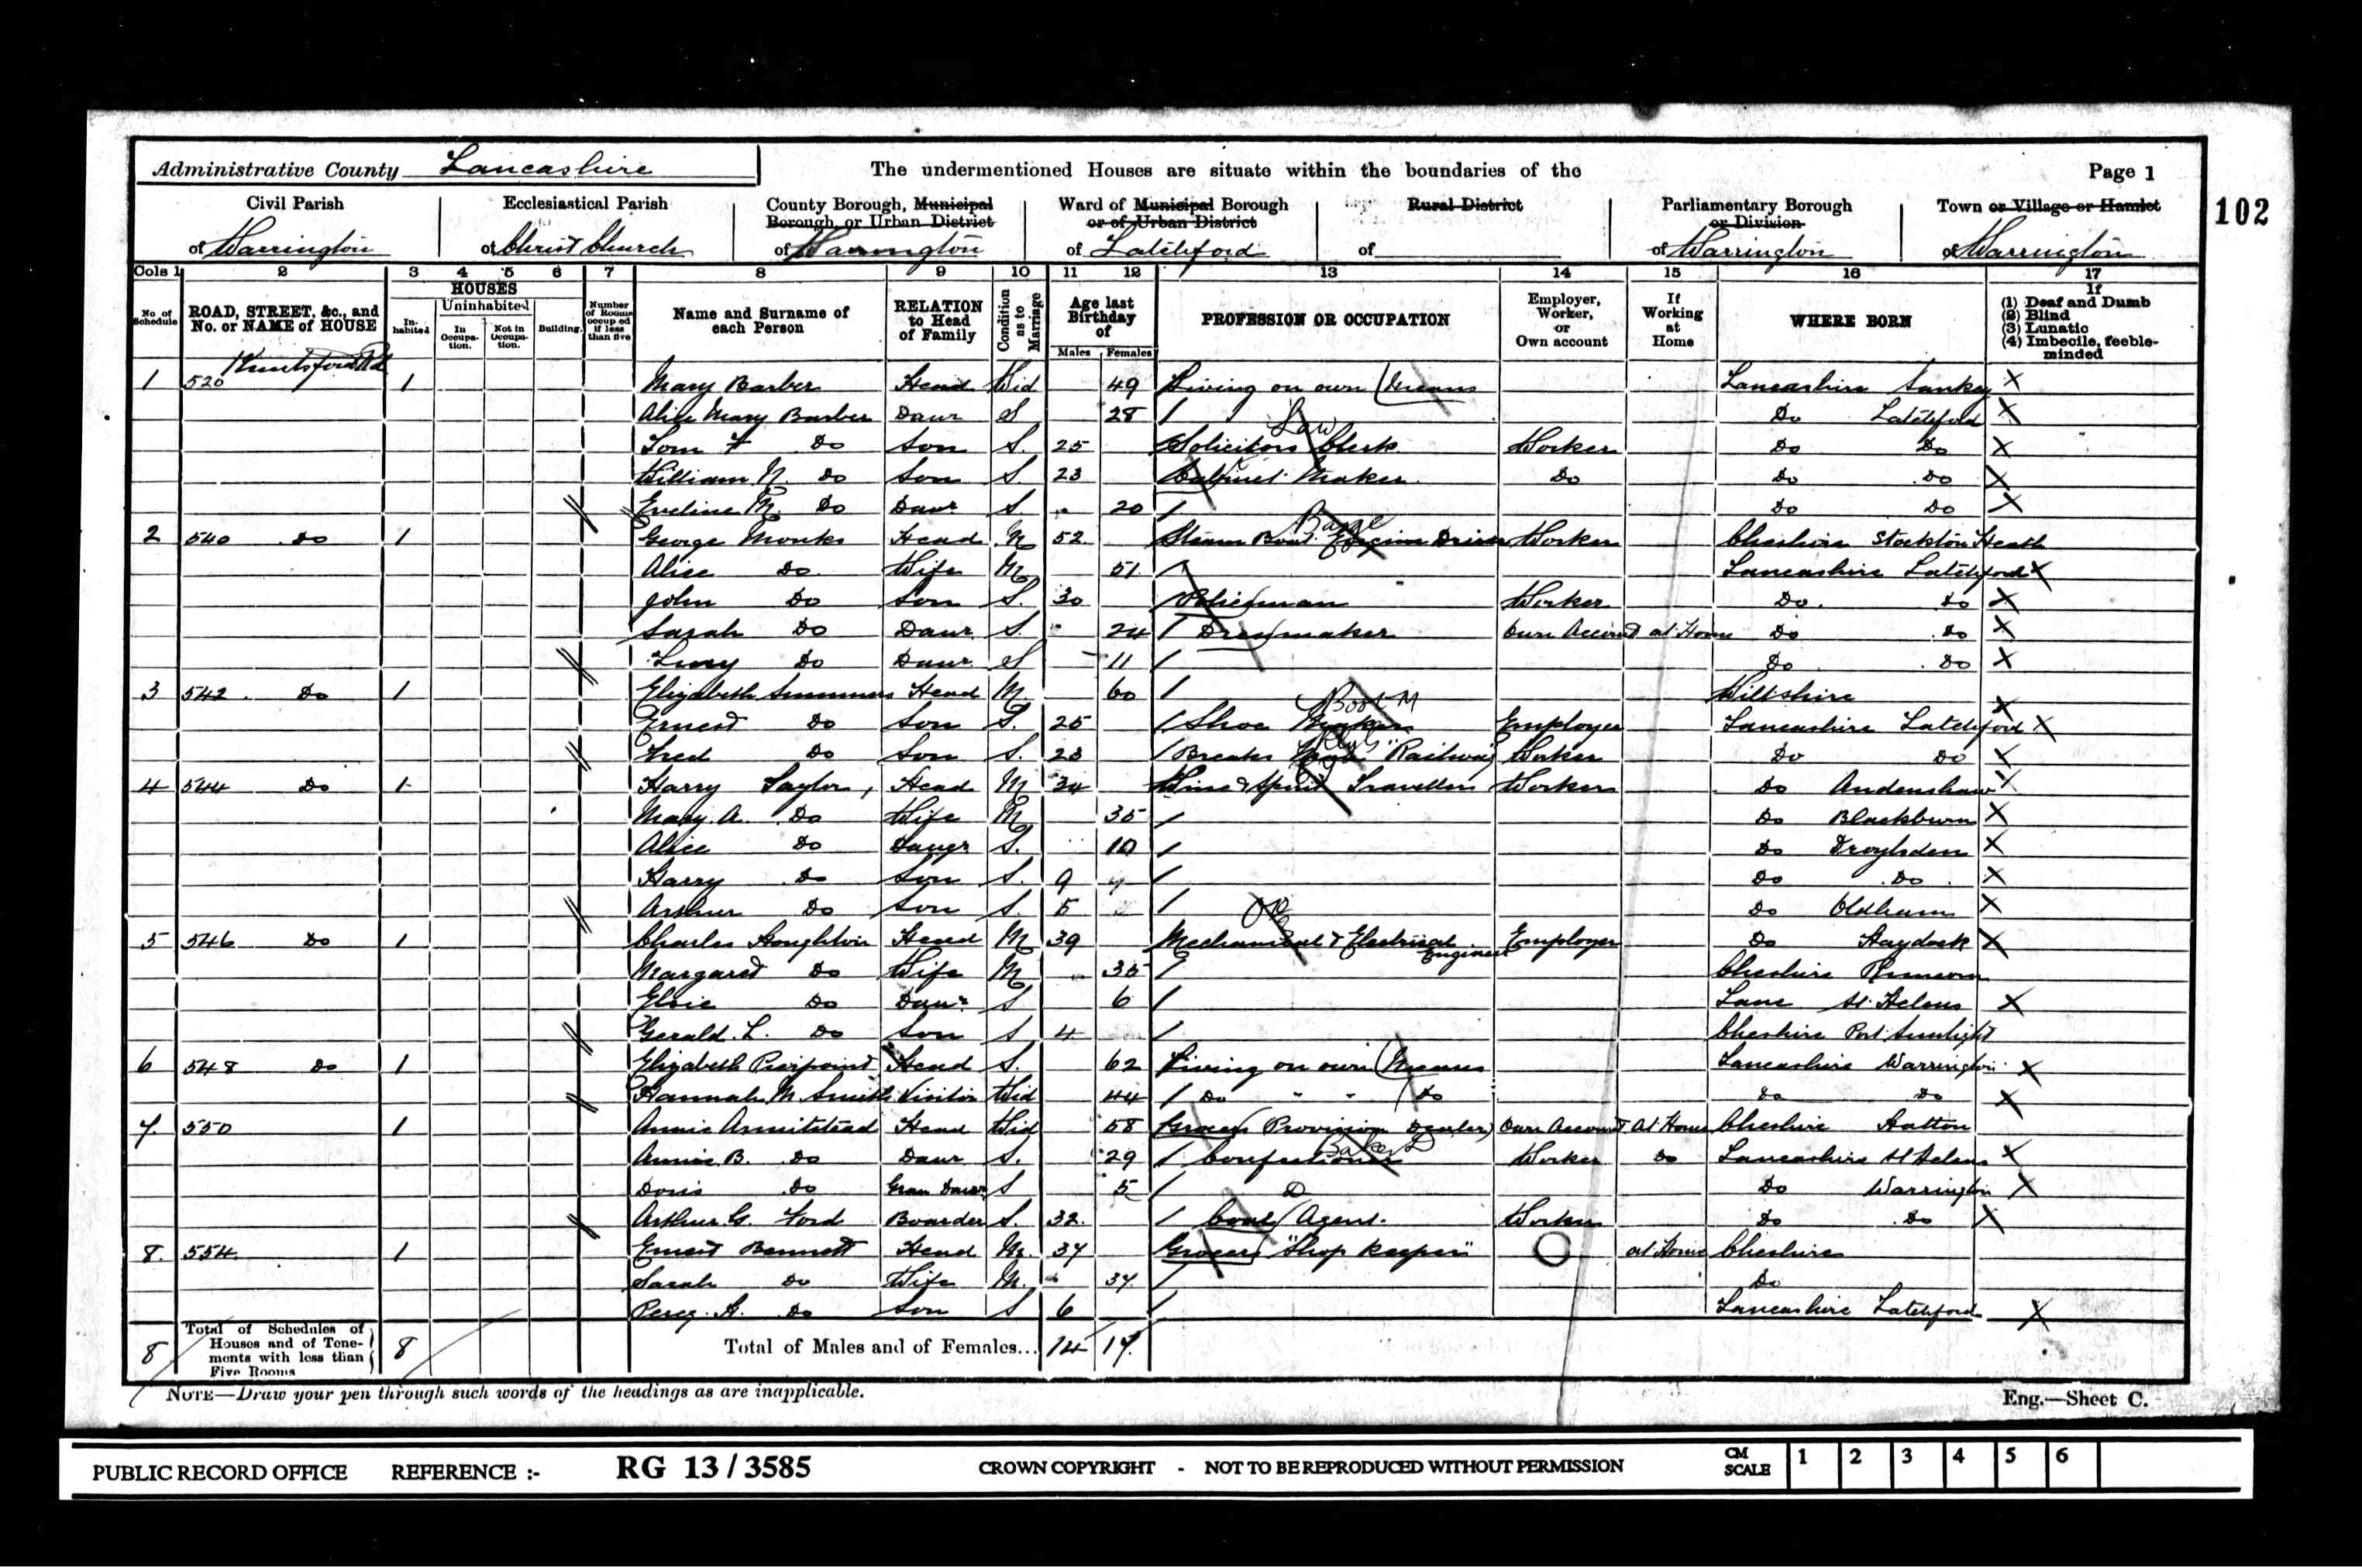 Administrative County Lancashire The undermentioned Houses are situate within the boundaries of the Page 1
Civil Parish Ecclesiastical Parish County Borough, Municipal Borough, or Urban District Ward of Municipal Borough or of Urban District Rural District Parliamentary Borough or Division Town or Village or Hamlet 102
of Warrington of Christ Church of Warrington of Latchford of of Warrington of Warrington
Cols 1 2 3 4 5 6 7 8 9 10 11 12 13 14 15 16 17
No. of Schedule ROAD, STREET, &c., and No. or NAME of HOUSE HOUSES Inhabited Uninhabited In Occupation. Not in Occupation. Building. Number of Rooms occupied if less than five Name and Surname of each Person RELATION to Head of Family Condition as to Marriage Age last Birthday of Males Females PROFESSION OR OCCUPATION Employer, Worker, or Own account If Working at Home WHERE BORN If (1) Deaf and Dumb (2) Blind (3) Lunatic (4) Imbecile, feeble-minded
Knutsford Rd
1 520 1 Mary Barber Head Wid 49 Living on own Means Lancashire Sankey X
Alice Mary Barber Daur S 28 Do Latchford X
Law
Tom F Do Son S. 25 Solicitors Clerk Worker Do Do X
William N. Do Son S. 23 Cabinet Maker Do Do Do X
Eveline M. Do Daur S. 20 Do Do X
Barge
2 540 Do 1 George Monks Head M 52 Steam Boat Engine Driver Worker Cheshire Stockton Heath
Alice Do Wife M 51 Lancashire Latchford X
John Do Son S. 30 Policeman Worker Do Do X
Sarah Do Daur S. 24 Dressmaker Own Account at Home Do Do X
Lucy Do Daur S 11 Do Do X
3 542 Do 1 Elizabeth Summers Head M 60 Wiltshire X
Boot M
Ernest Do Son S. 25 Shoe Maker Employer Lancashire Latchford X
Fred Do Son S. 23 Breaks "Railway" Worker Do Do X
4 544 Do 1 Harry Taylor, Head M 34 Wine & Spirit Traveller Worker Do Audenshaw X
Mary A. Do Wife M 35 Do Blackburn X
Alice Do Daugr S. 10 Do Droylsden X
Harry Do Son S. 9 Do Do X
Arthur Do Son S. 5 Do Oldham X
5 546 Do 1 Charles Houghton Head M 39 Mechanical & Electrical Engineer Employer Do Haydock X
Margaret Do Wife M 35 Cheshire Runcorn
Elsie Do Daur S 6 Lanc St. Helens X
Gerald L. Do Son S 4 Cheshire Port Sunlight
6 548 Do 1 Elizabeth Pierpoint Head S. 62 Living on own Means Lancashire Warrington X
Hannah M. Smith Visitor Wid 44 Do " " Do Do Do X
7. 550 1 Annie Armitstead Head Wid 58 Grocer (Provision Dealer) Own Account At Home Cheshire Hatton
Baker D
Annie B. Do Daur S. 29 Confectioner Worker Do Lancashire St Helens X
Doris Do Gran Daur S 5 Do Warrington X
D
Arthur G. Ford Boarder S. 32 Coal Agent. Worker Do Do X
8. 554 1 Ernest Bennett Head M. 37 Grocers "Shop Keeper" at Home Cheshire
Sarah Do Wife M. 37 Do
Percy H. Do Son S 6 Lancashire Latchford X
8 Total of Schedules of Houses and of Tenements with less than Five Rooms 8 Total of Males and of Females... 14 17
NOTE—Draw your pen through such words of the headings as are inapplicable. Eng.—Sheet C.
PUBLIC RECORD OFFICE REFERENCE :- RG 13 / 3585 CROWN COPYRIGHT - NOT TO BE REPRODUCED WITHOUT PERMISSION CM SCALE 1 2 3 4 5 6